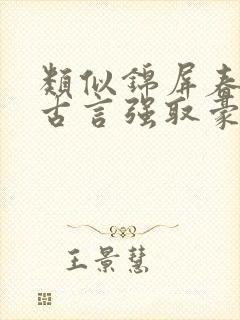 類似錦屏春
古言强取豪
王景慧